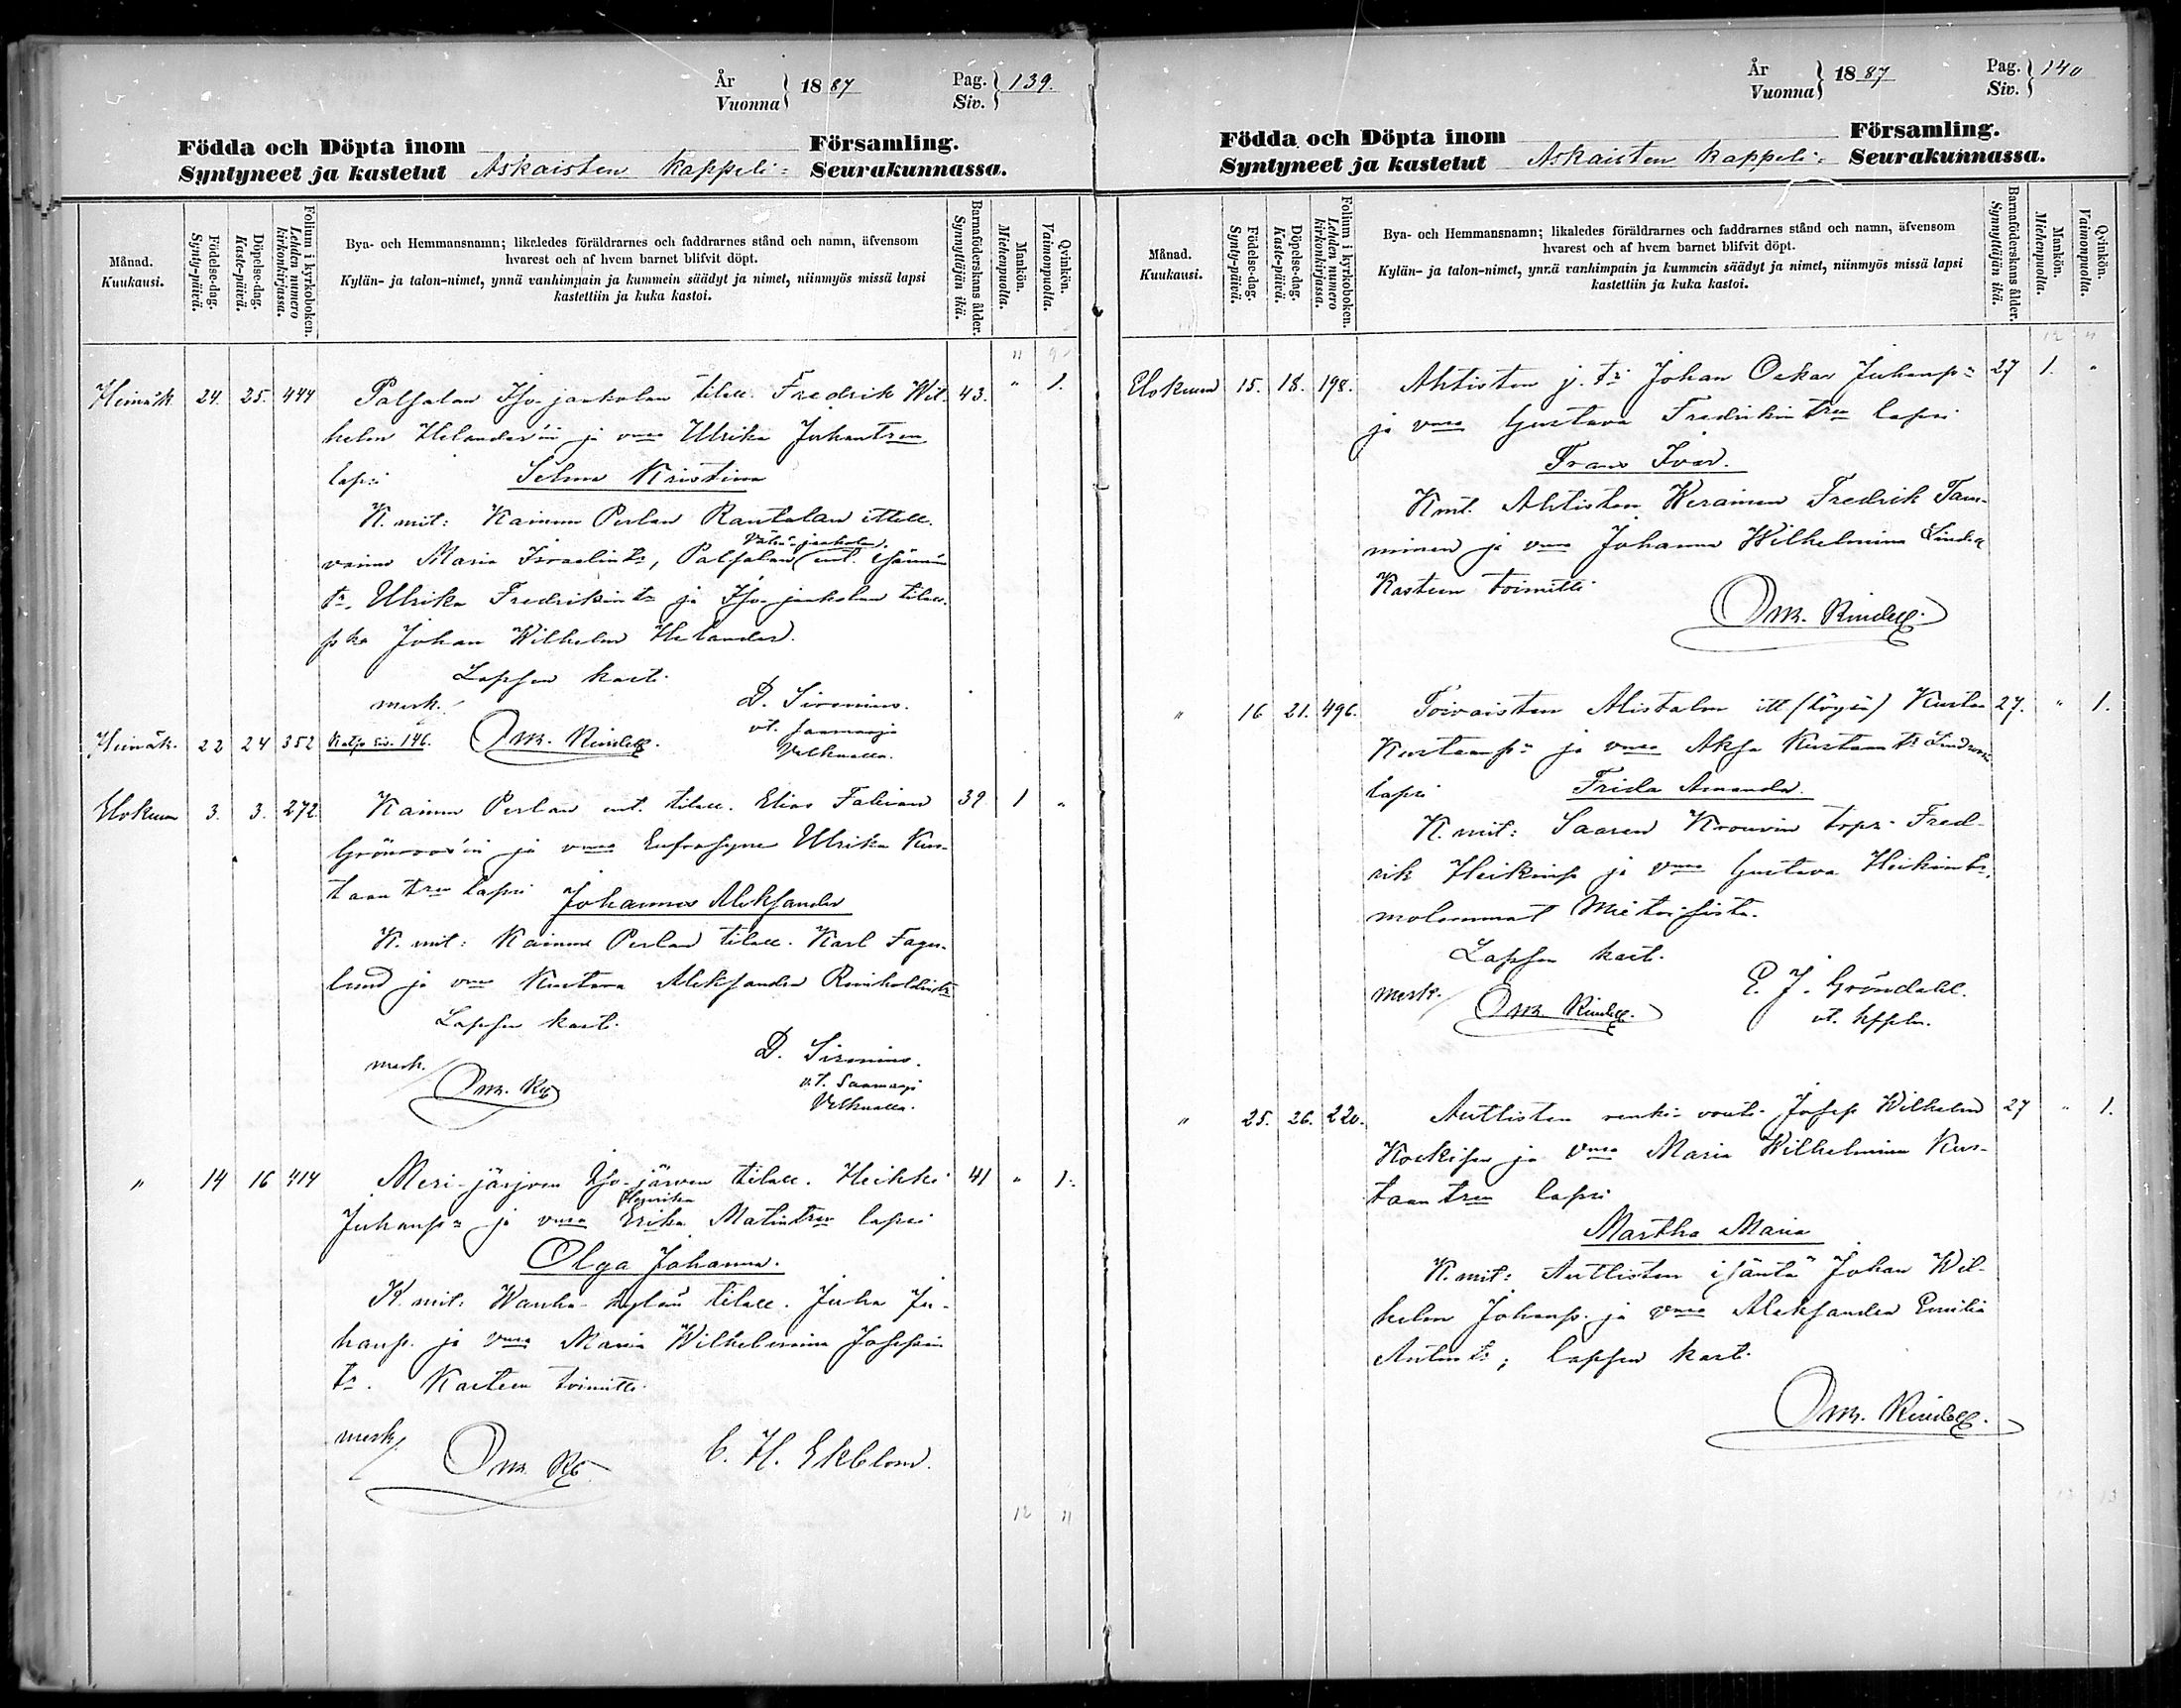 År
Vuonna } 1887 Pag.
Siv. } 139.
Födda och Döpta inom Församling.
Syntyneet ja kastetut Askaisten kappeli- Seurakunnassa.
Månad.
Kuukausi.
Födelse-dag.
Synty-päivä.
Döpelse-dag.
Kaste-päivä.
Folium i kyrkoboken.
Lehden numero
kirkonkirjassa.
Bya- och Hemmansnamn; likeledes föräldrarnes och faddrarnes stånd och namn, äfvensom
hvarest och af hvem barnet blifvit döpt.
Kylän- ja talon-nimet, ynnä vanhimpain ja kummein säädyt ja nimet, niinmyös missä lapsi
kastettiin ja kuka kastoi.
Barnaföderskans ålder.
Synnyttäjän ikä.
Mankön.
Miehenpuolta.
Qvinkön.
Vaimonpuolta.
11 9
Heinäk. 24. 25. 444 Palsalan Iso-jaakolan tilall. Fredrik Wil- 43. " 1.
helm Helander'in ja vmo Ulrika Juhantren
lapsi Selma Kristina
K. mit: Kainun Perlan Rantalan ittell.
Vähä-jaakolan
vaimo Maria Israelintr, Palsalan ent. isännän
tr. Ulrika Fredrikintr ja Iso-jaakolan tilall.
pka Johan Wilhelm Helander.
Lapsen kast.
merk. D. Sirenius.
vt. Saarnaaja
Heinäk. 22 24 352 Katso siv. 146. Osk. Rindell. Velkualla.
Elokuun 3. 3. 272 Kainun Perlan ent. tilall. Elias Fabian 39 1 "
Grönroos'in ja vmo Eufrosyne Ulrika Kus-
taan tren lapsi Johannes Aleksander
K. mit: Kainun Perlan tilall. Karl Fager-
lund ja vmo Kustava Aleksandra Reinholdintr
Lapsen kast.
D. Sirenius.
merk. vt. Saarnaaja
Velkualla.
" 14 16 414 Meri-järjven Iso-järven tilall. Heikki 41 " 1.
Henrika
Juhanp:n ja vmo Erika Matintren lapsi
Olga Johanna.
K. mit: Wanha-kylän tilall. Juha Ju-
hanp. ja vmo Maria Wilhelmina Josefin
tr. Kasteen toimitti
merk. C. H. Ekblom.
12 11
År
Vuonna } 1887 Pag.
Siv. } 140
Födda och Döpta inom Församling.
Syntyneet ja kastetut Askaisten kappeli- Seurakunnassa.
Månad.
Kuukausi.
Födelse-dag.
Synty-päivä.
Döpelse-dag.
Kaste-päivä.
Folium i kyrkoboken.
Lehden numero
kirkonkirjassa.
Bya- och Hemmansnamn; likaledes föräldrarnes och faddrarnes stånd och namn, äfvensom
hvarest och af hvem barnet blifvit döpt.
Kylän- ja talon-nimet, ynnä vanhimpain ja kummein säädyt ja nimet, niinmyös missä lapsi
kastettiin ja kuka kastoi.
Barnaföderskans ålder.
Synnyttäjän ikä.
Mankön.
Miehenpuolta.
Qvinkön.
Vaimonpuolta.
12 11
Elokuun 15. 18. 198. Ahtisten j. tr: Johan Oskar Juhanp:n 27 1. "
ja vmo Gustava Fredrikin tren lapsi
Frans Ivar.
K mt. Ahtisten Keräinen Fredrik Tam-
minen ja vmo Johanna Wilhelmina Lindell
Kasteen toimitti
Osk. Rindell.
" 16 21. 496. Toivaisten Alistalon itt (löysä) Kustaa 27. " 1.
Kustaanp:n ja vmo Aksa Kustaan tr
lapsi Frida Amanda.
K. mit: Saaren Krouvin torp. Fred-
rik Heikinp ja vmo Gustava Heikintr,
molemmat Mietoisista.
Lapsen kast.
merk. Osk. Rindell. E. J. Gröndahl.
vt. kpln.
" 25. 26. 220. Autlisten renki-vouti Josef Wilhelm 27 " 1.
Koskisen ja vmo Maria Wilhelmina Kus-
taan tren lapsi
Martha Maria
K. mit: Autlisten isäntä Johan Wil-
helm Johanp. ja vmo Aleksandra Emilia
Antintr; lapsen kast.
Osk. Rindell.
13 13